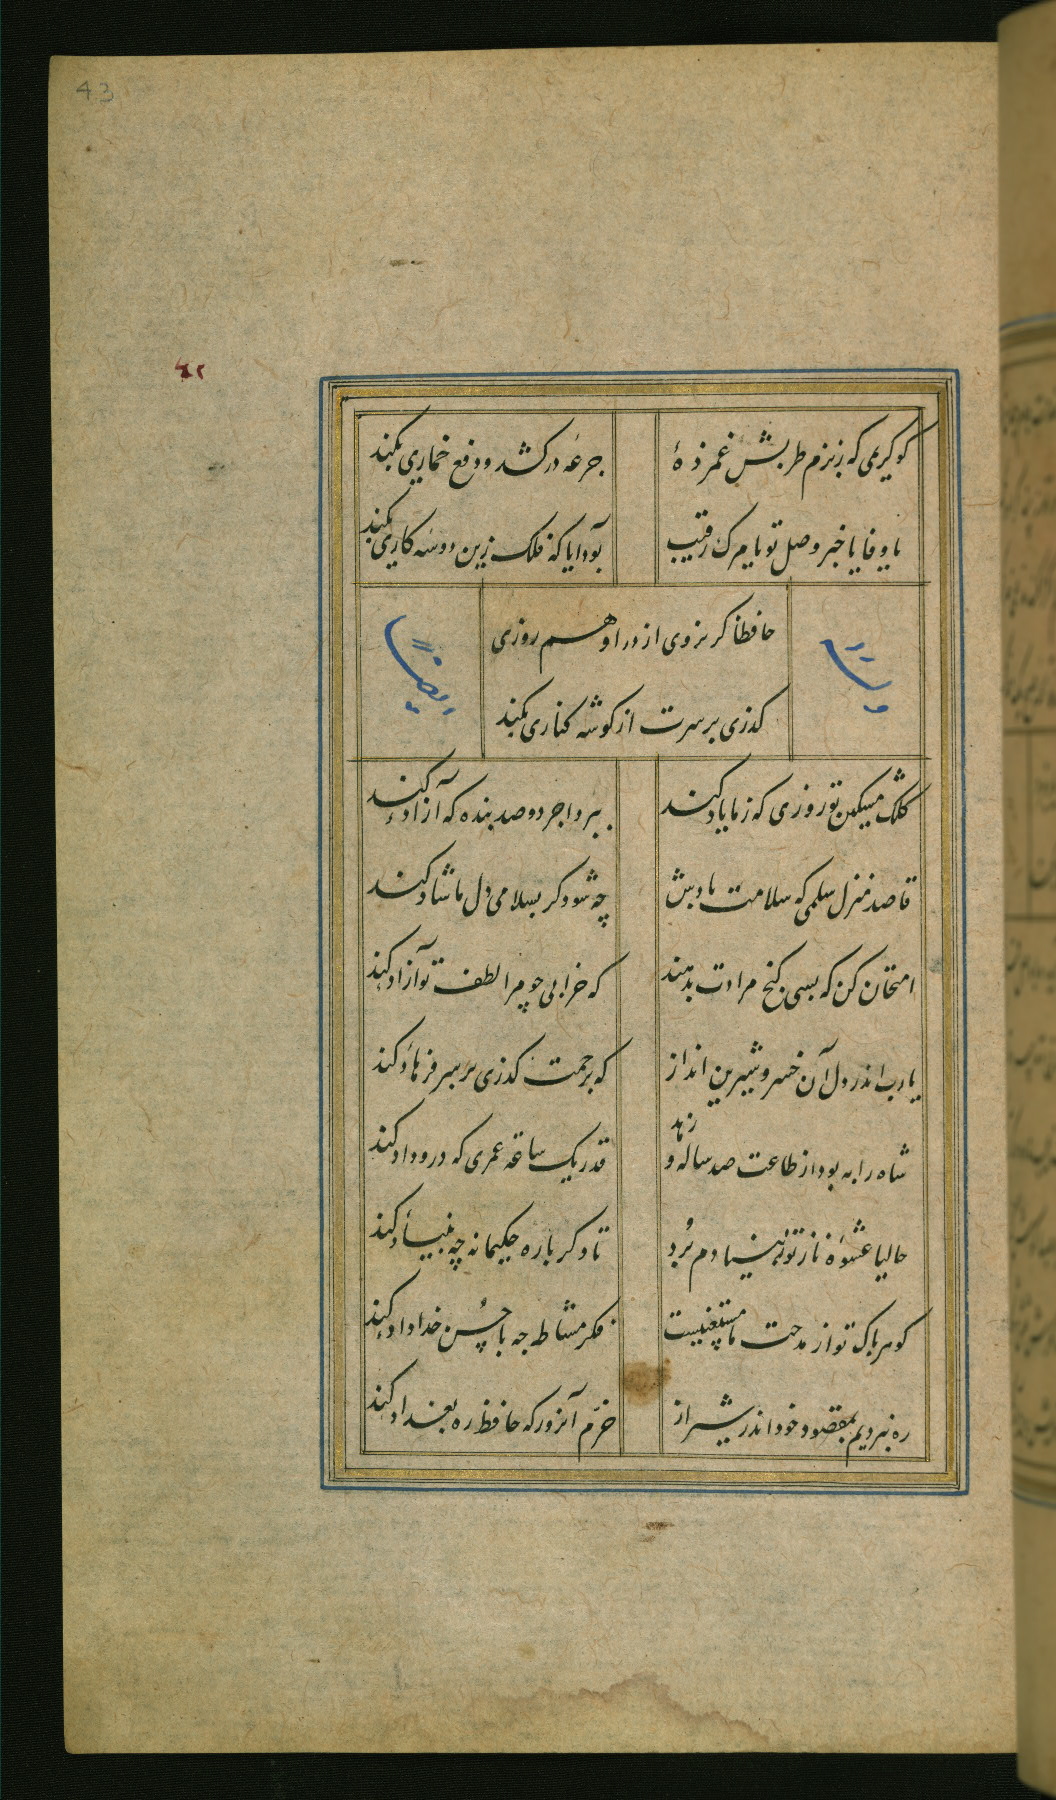 43
۴۲
کو کریمی که ز بزم طربش غمزدهٔ جرعهٔ درکشد و دفع خماری بکند
یا وفا یا خبر وصل تو یا مرک رقیب بود آیا که فلک زین دو سه کاری بکند
حافظا کر نروی از در او هم روزی
کذری برسرت از کوشه کناری بکند
وله ایضاً
کلک مشکین تو روزی که ز ما یاد کند ببرد اجر دو صد بنده که آزاد کند
قاصد منزل سلمی که سلامت بادش چه شود کر بسلامی دل ما شاد کند
امتحان کن که بسی کنج مرادت بدهند که خرابی چو مرا لطف تو آزاد کند
یارب اندر دل آن خسرو شیرین انداز که برحمت کذری بر سر فرهاد کند
شاه را به بود از طاعت صد ساله و زهد قدر یک ساعته عمری که درو داد کند
حالیا عشوهٔ ناز تو ز بنیادم برد تا دکر باره حکیمانه چه بنیاد کند
کوهر پاک تو از مدحت ما مستغنیست فکر مشاطه چه با حسن خداداد کند
ره نبردیم بمقصود خود اندر شیراز خرم آنروز که حافظ ره بغداد کند